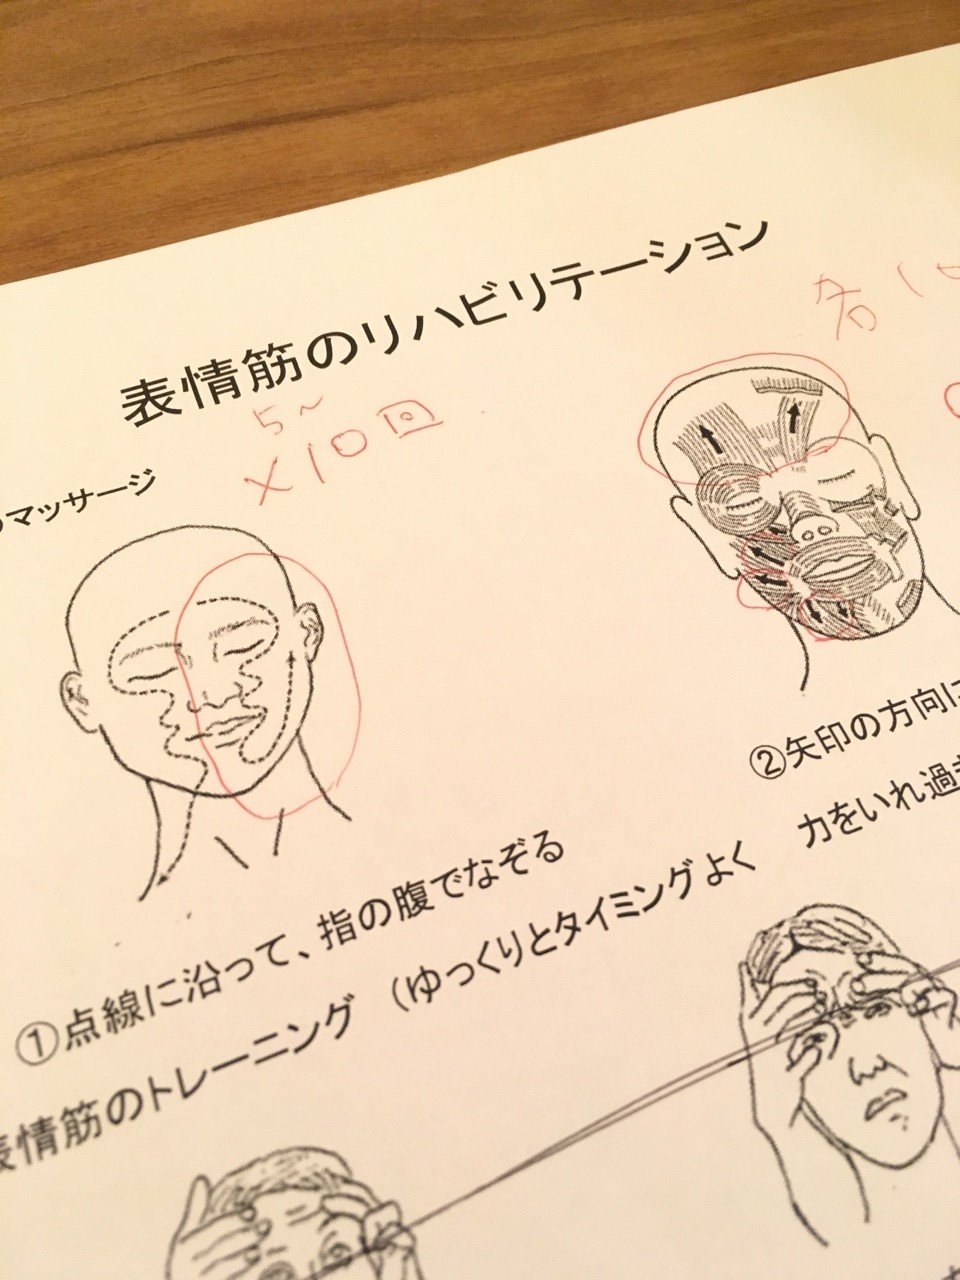 表情筋のリハビリテーション
5~
×10回
各10
のマッサージ
①点線に沿って、指の腹でなぞる
②矢印の方向に
力をいれ過ぎ
表情筋のトレーニング (ゆっくりとタイミングよく